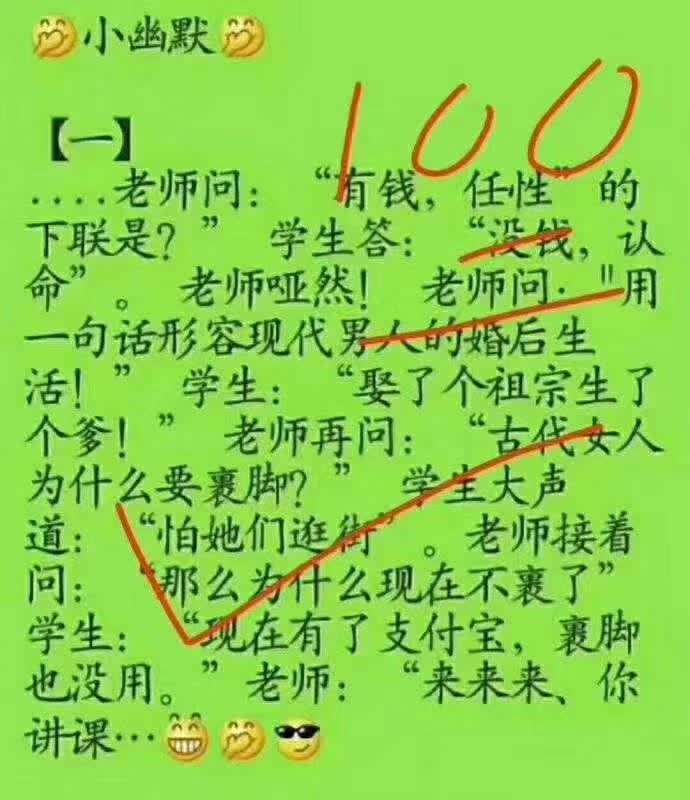 小幽默
100
【一】
....老师问：“有钱，任性”的
下联是？” 学生答：“没钱，认
命”。 老师哑然！ 老师问："用
一句话形容现代男人的婚后生
活！” 学生：“娶了个祖宗生了
个爹！” 老师再问：“古代女人
为什么要裹脚？” 学生大声
道：“怕她们逛街”。老师接着
问：“那么为什么现在不裹了”
学生：“现在有了支付宝，裹脚
也没用。”老师：“来来来、你
讲课…